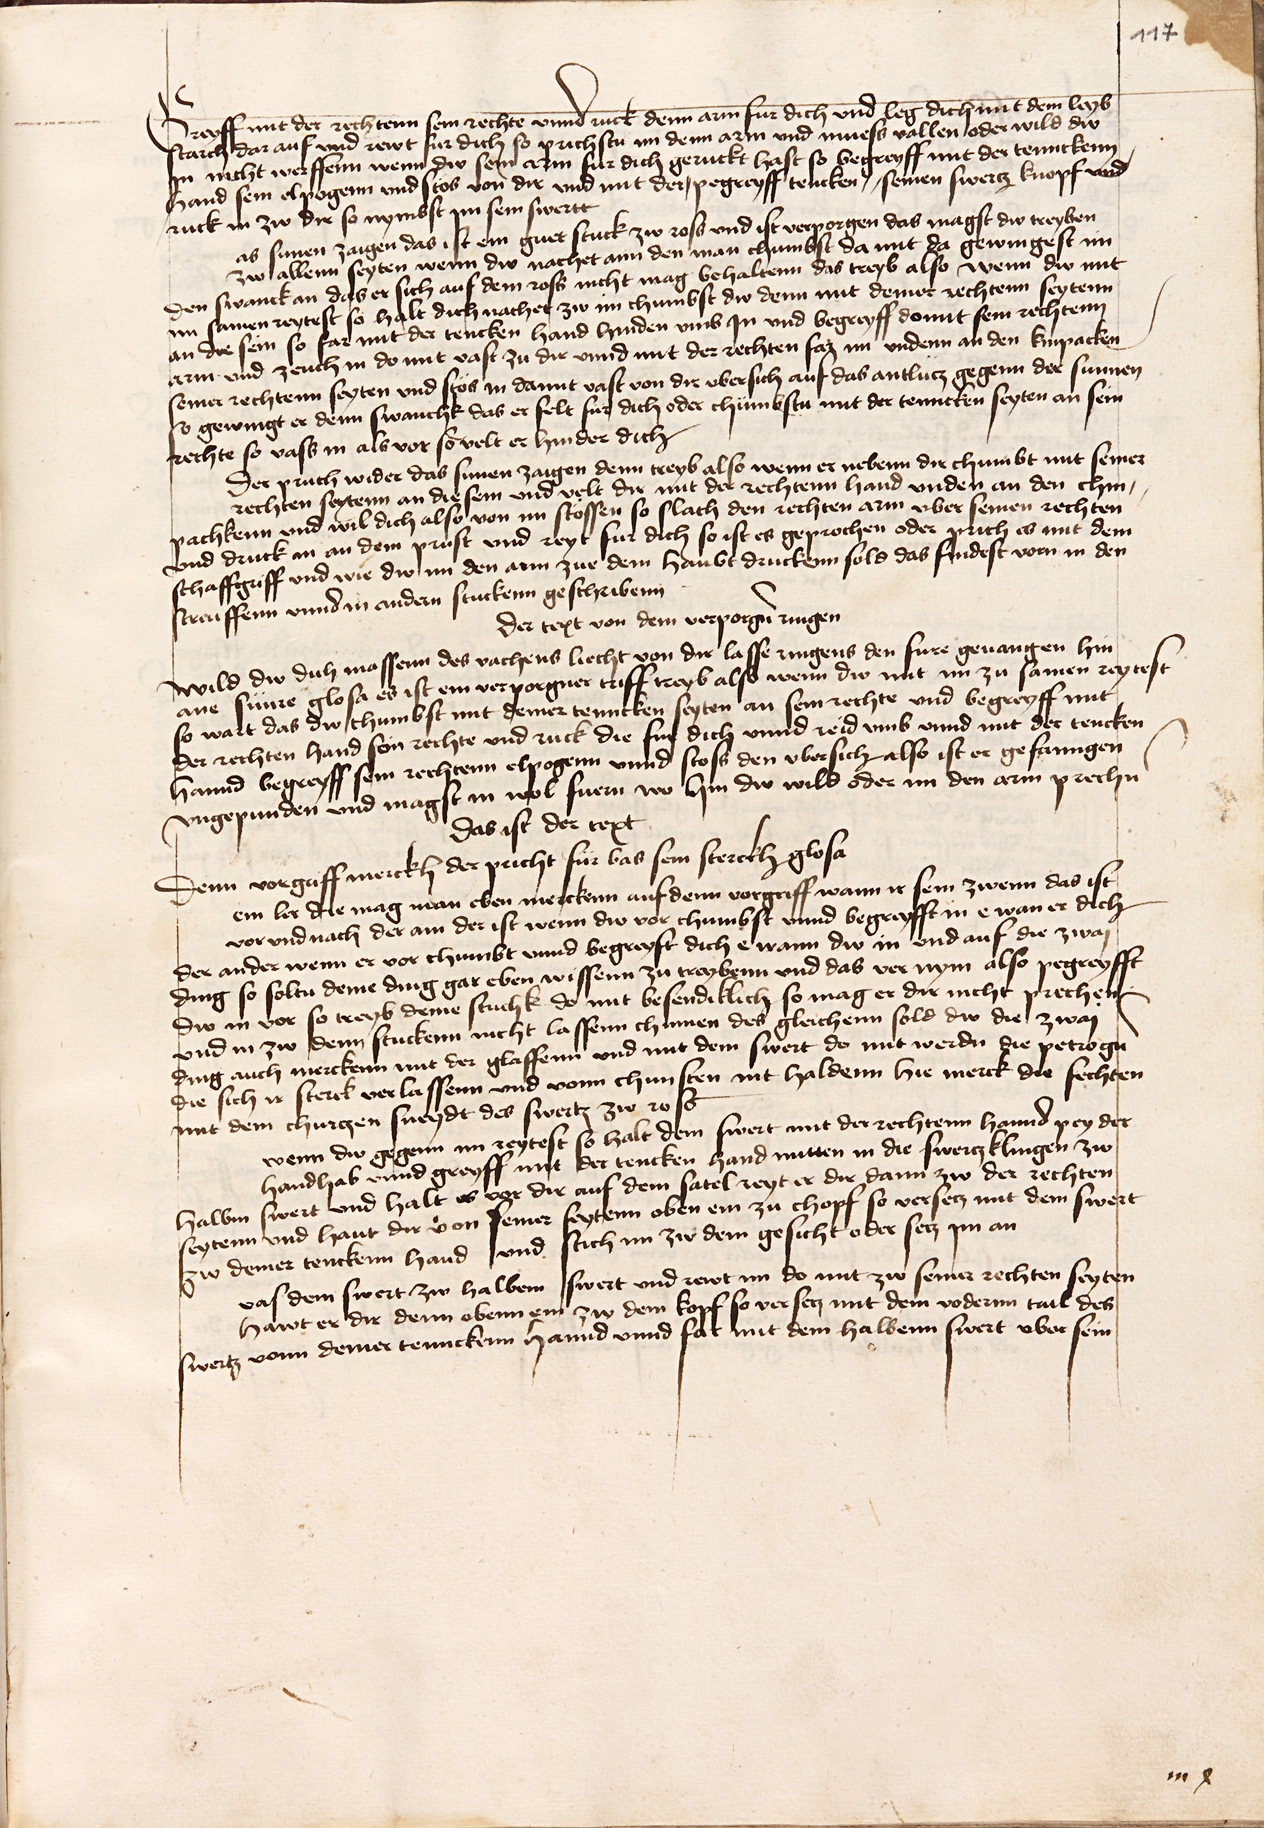 117
Greyff mit der rechtenn sein rechte vnnd ruck denn arm fur dich vnd leg dich mit dem leyb
starch dar auf vnd rewt fur dich so prichstu im denn arm vnd muess vallen oder wild dw
in nicht werffenn wenn dw sein arm fur dich geruckt hast so begreyff mit der tennckenn
hand sein elpogenn vnd stos von dir vnd mit der pegreyff tencken seinen swertz knopf vnd
ruck in zw dir so nymbst im sein swertt
as sunen zaigen das ist ein guet stuck zw ross vnd ist verporgen das magst dw treyben
zw allenn seyten wenn dw nachet ann den man chumbst da mit da gewingest im
den swanck an das er sich auf dem ross nicht mag behaltenn das treyb also wenn dw mit
im samen reytest so halt dich nachet zw im chumbst dw denn mit deiner rechtenn seytenn
an die sein so far mit der tencken hand hinden vmb In vnd begreyff domit sein rechtenn
arm vnd zeuch in do mit vast zu dir vnnd mit der rechten faz im vndenn an den kinpacken
seiner rechtenn seyten vnd stos in damit vast von dir vbersich auf das antlucz gegenn der sunnen
so gewingt er denn swanchk das er felt fur dich oder chumbstu mit der tenncken seyten an sein
rechte so vass in als vor so velt er hinder dich
Der pruch wider das sunen zaigen denn treyb also wenn er nebenn dir chumbt mit seiner
rechten seytenn an die sein vnd velt dir mit der rechtenn hand vnden an den chin
pachkenn vnd wil dich also von im stossen so slach den rechten arm vber seinen rechten
vnd druck in an dein prust vnd reyt fur dich so ist es geprochen oder prich es mit dem
schaffgriff vnd wie dw im den arm zue dem haubt druckenn sold das findest vorn in den
streuffenn vnnd in andern stuckenn geschribenn
Der text von dem verporgn ringen
Wild dw dich massenn des vachens liecht von dir lasse ringens den fure geuangen hin
ane sunre glosa es ist ein verporgner triff treyb also wenn dw mit im zu samen reytest
so wart das dw chumbst mit deiner tenncken seyten an sein rechte vnd begreyff mit
der rechten hand sein rechte vnd ruck die fur dich vnnd reid vmb vnnd mit der tencken
hannd begreyff sein rechtenn elpogenn vnnd stoss den vbersich also ist er gefanngen
vngepunden vnd magst in wol fuern wo hin dw wild oder im den arm prechn
Das ist der text
Denn vorgriff merckh der pricht fur bas sein sterckh glosa
ein ler die mag man eben merckenn auf denn vorgriff wann ir sein zwenn das ist
vor vnd nach der ain der ist wenn dw vor chumbst vnnd begreyfft in e wan er dich
der ander wenn er vor chumbt vnnd begreyft dich e wann dw in vnd auf die zwai
ding so soltu deine ding gar eben wissenn zu treybenn vnd das ver nym also pegreyfft
dw in vor so treyb deine stuchk do mit besendiklich so mag er dir nicht prechen
vnd in zw denn stuckenn nicht lassenn chumen des gleichenn sold dw die zwai
ding auch merckenn mit der glaffenn vnd mit dem swert do mit werdn die petrogn
die sich ir sterck verlassenn vnd vonn chunsten nit haldenn hie merck die fechten
mit dem churczen sneydt des swertz zw ross
wenn dw gegenn im reytest so halt dein swert mit der rechtenn hannd pey der
handhab vnnd greyff mit der tencken hand mitten in die swertzklingen zw
halbm swert vnd halt es vor dir auf dem satel reyt er dir dann zw der rechten
seytenn vnd haut dir von seiner seytenn oben ein zu chopf so versecz mit dem swert
zw deiner tenckenn hand vnd stich im zw dem gesicht oder secz im an
vas dein swert zw halbem swert vnd rewt im do mit zw seiner rechten seyten
hawt er dir denn obenn ein zw dem kopf so versecz mit dem vodernn tail des
swertz vonn deiner tennckenn hannd vnnd far mit dem halbenn swert vber sein